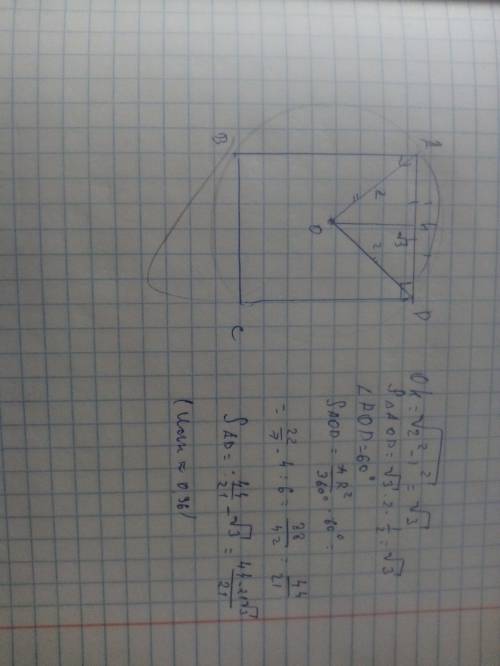 A
B
C
D
O
H
2
2
√3
OH = √2² - 1² = √3
S△AOD = √3 · 2 · 1/2 = √3
∠AOD = 60°
SAOD = πR²/360° · 60° =
= 22/7 · 4 : 6 = 88/42 = 44/21
SAD = 44/21 - √3 = 44-21√3/21
(или ≈ 0,36)